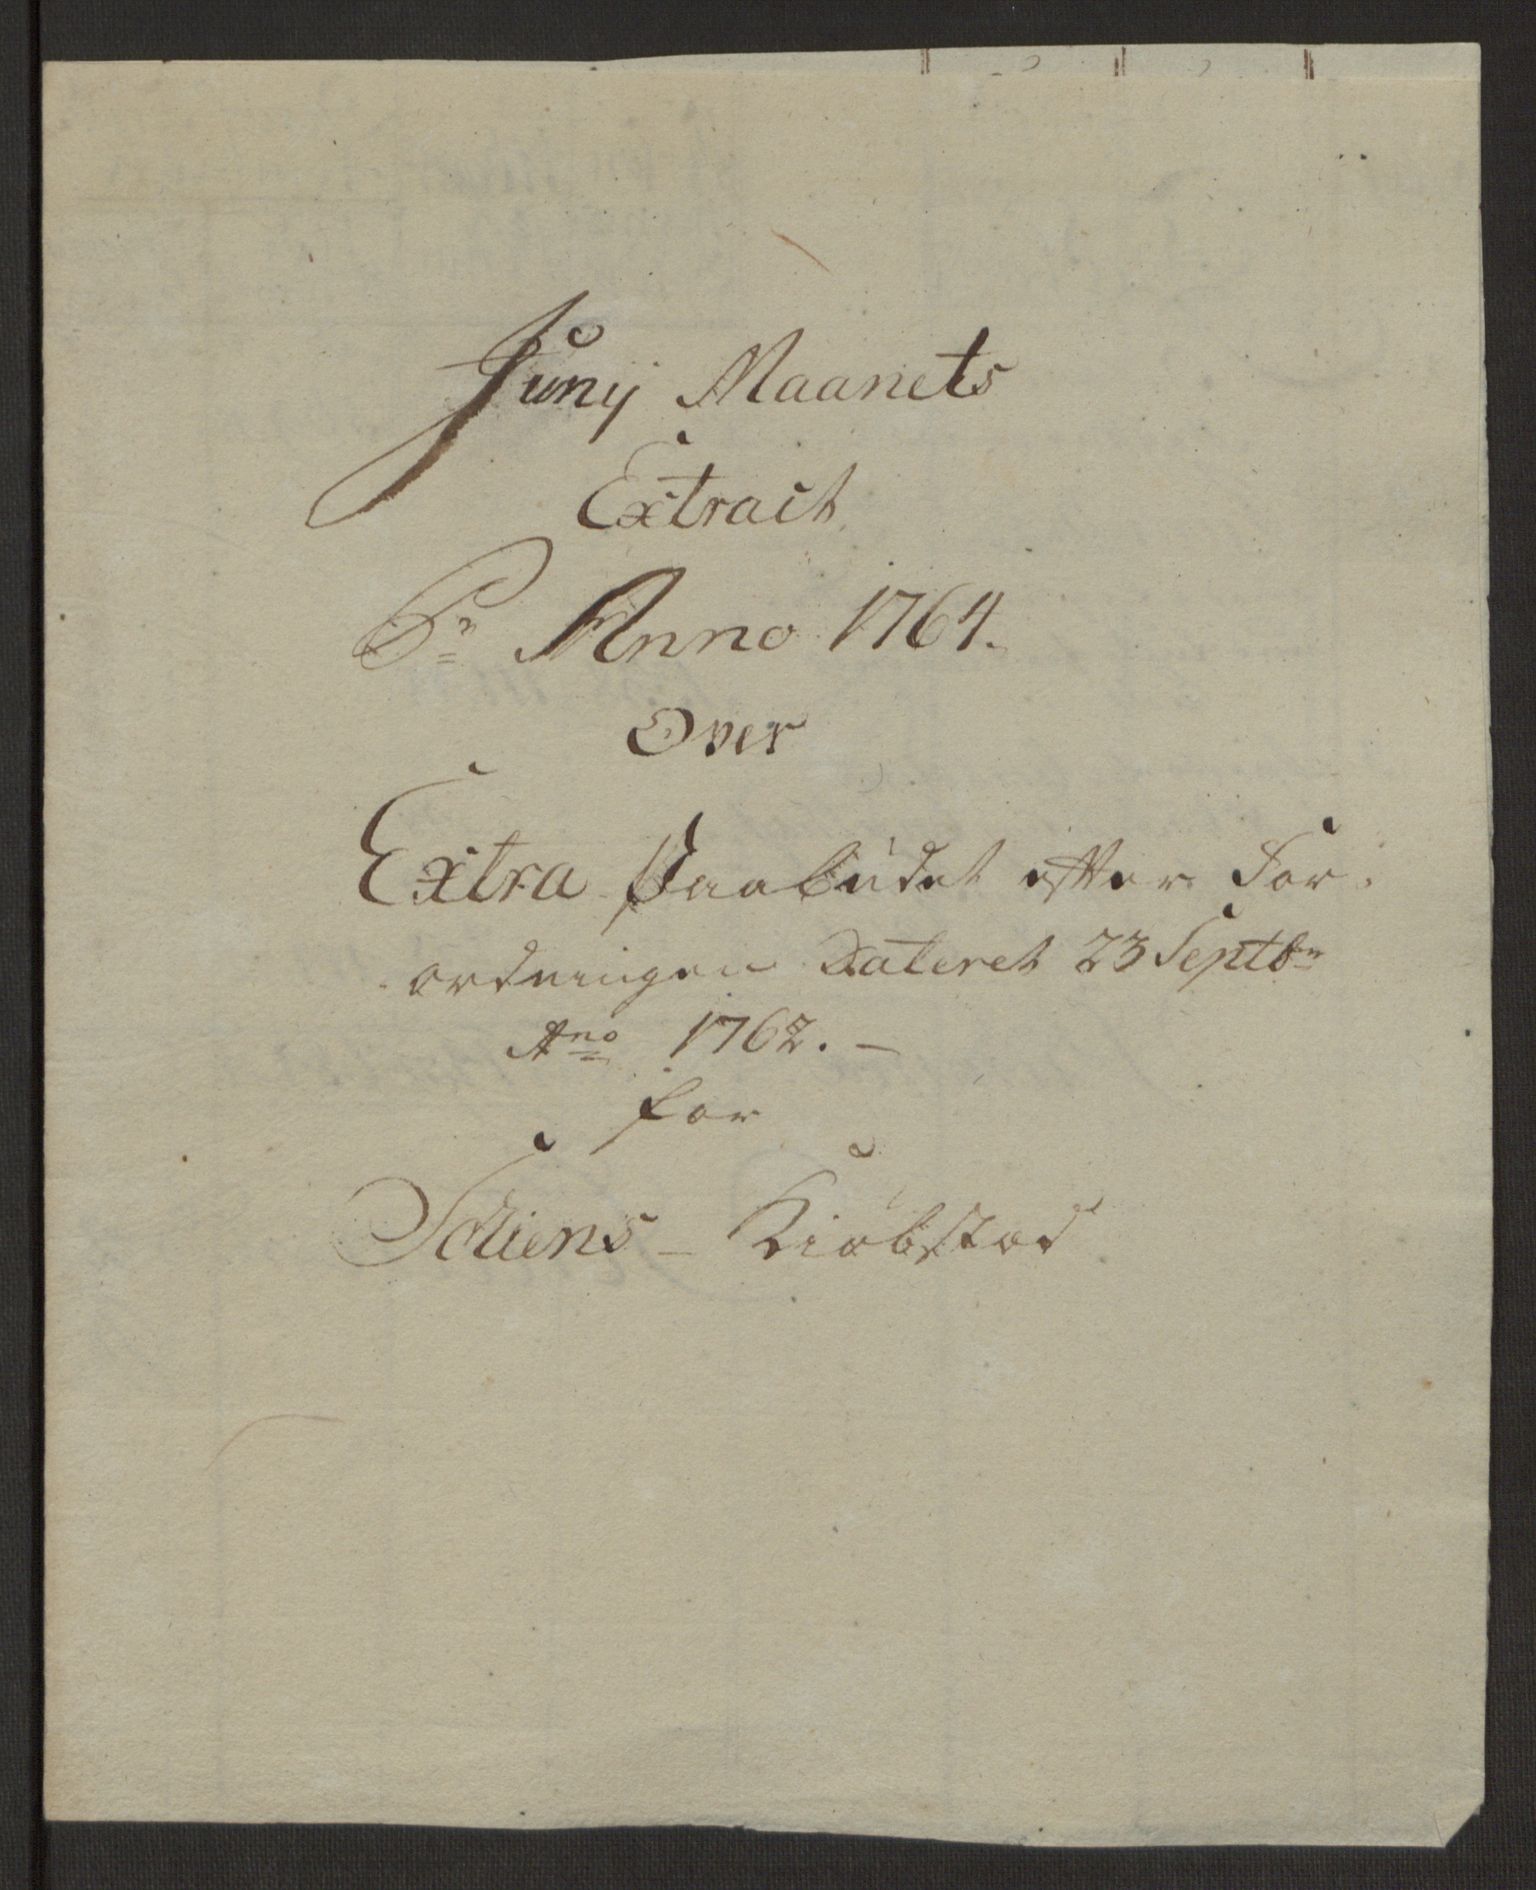 Junij Maanets
Extract
Pr Anno 1764.
Over
Extra Paabudet efter For-
ordningen Dateret 23 Septbr
Ano 1762. —
for
Schiens - Kiøbstad